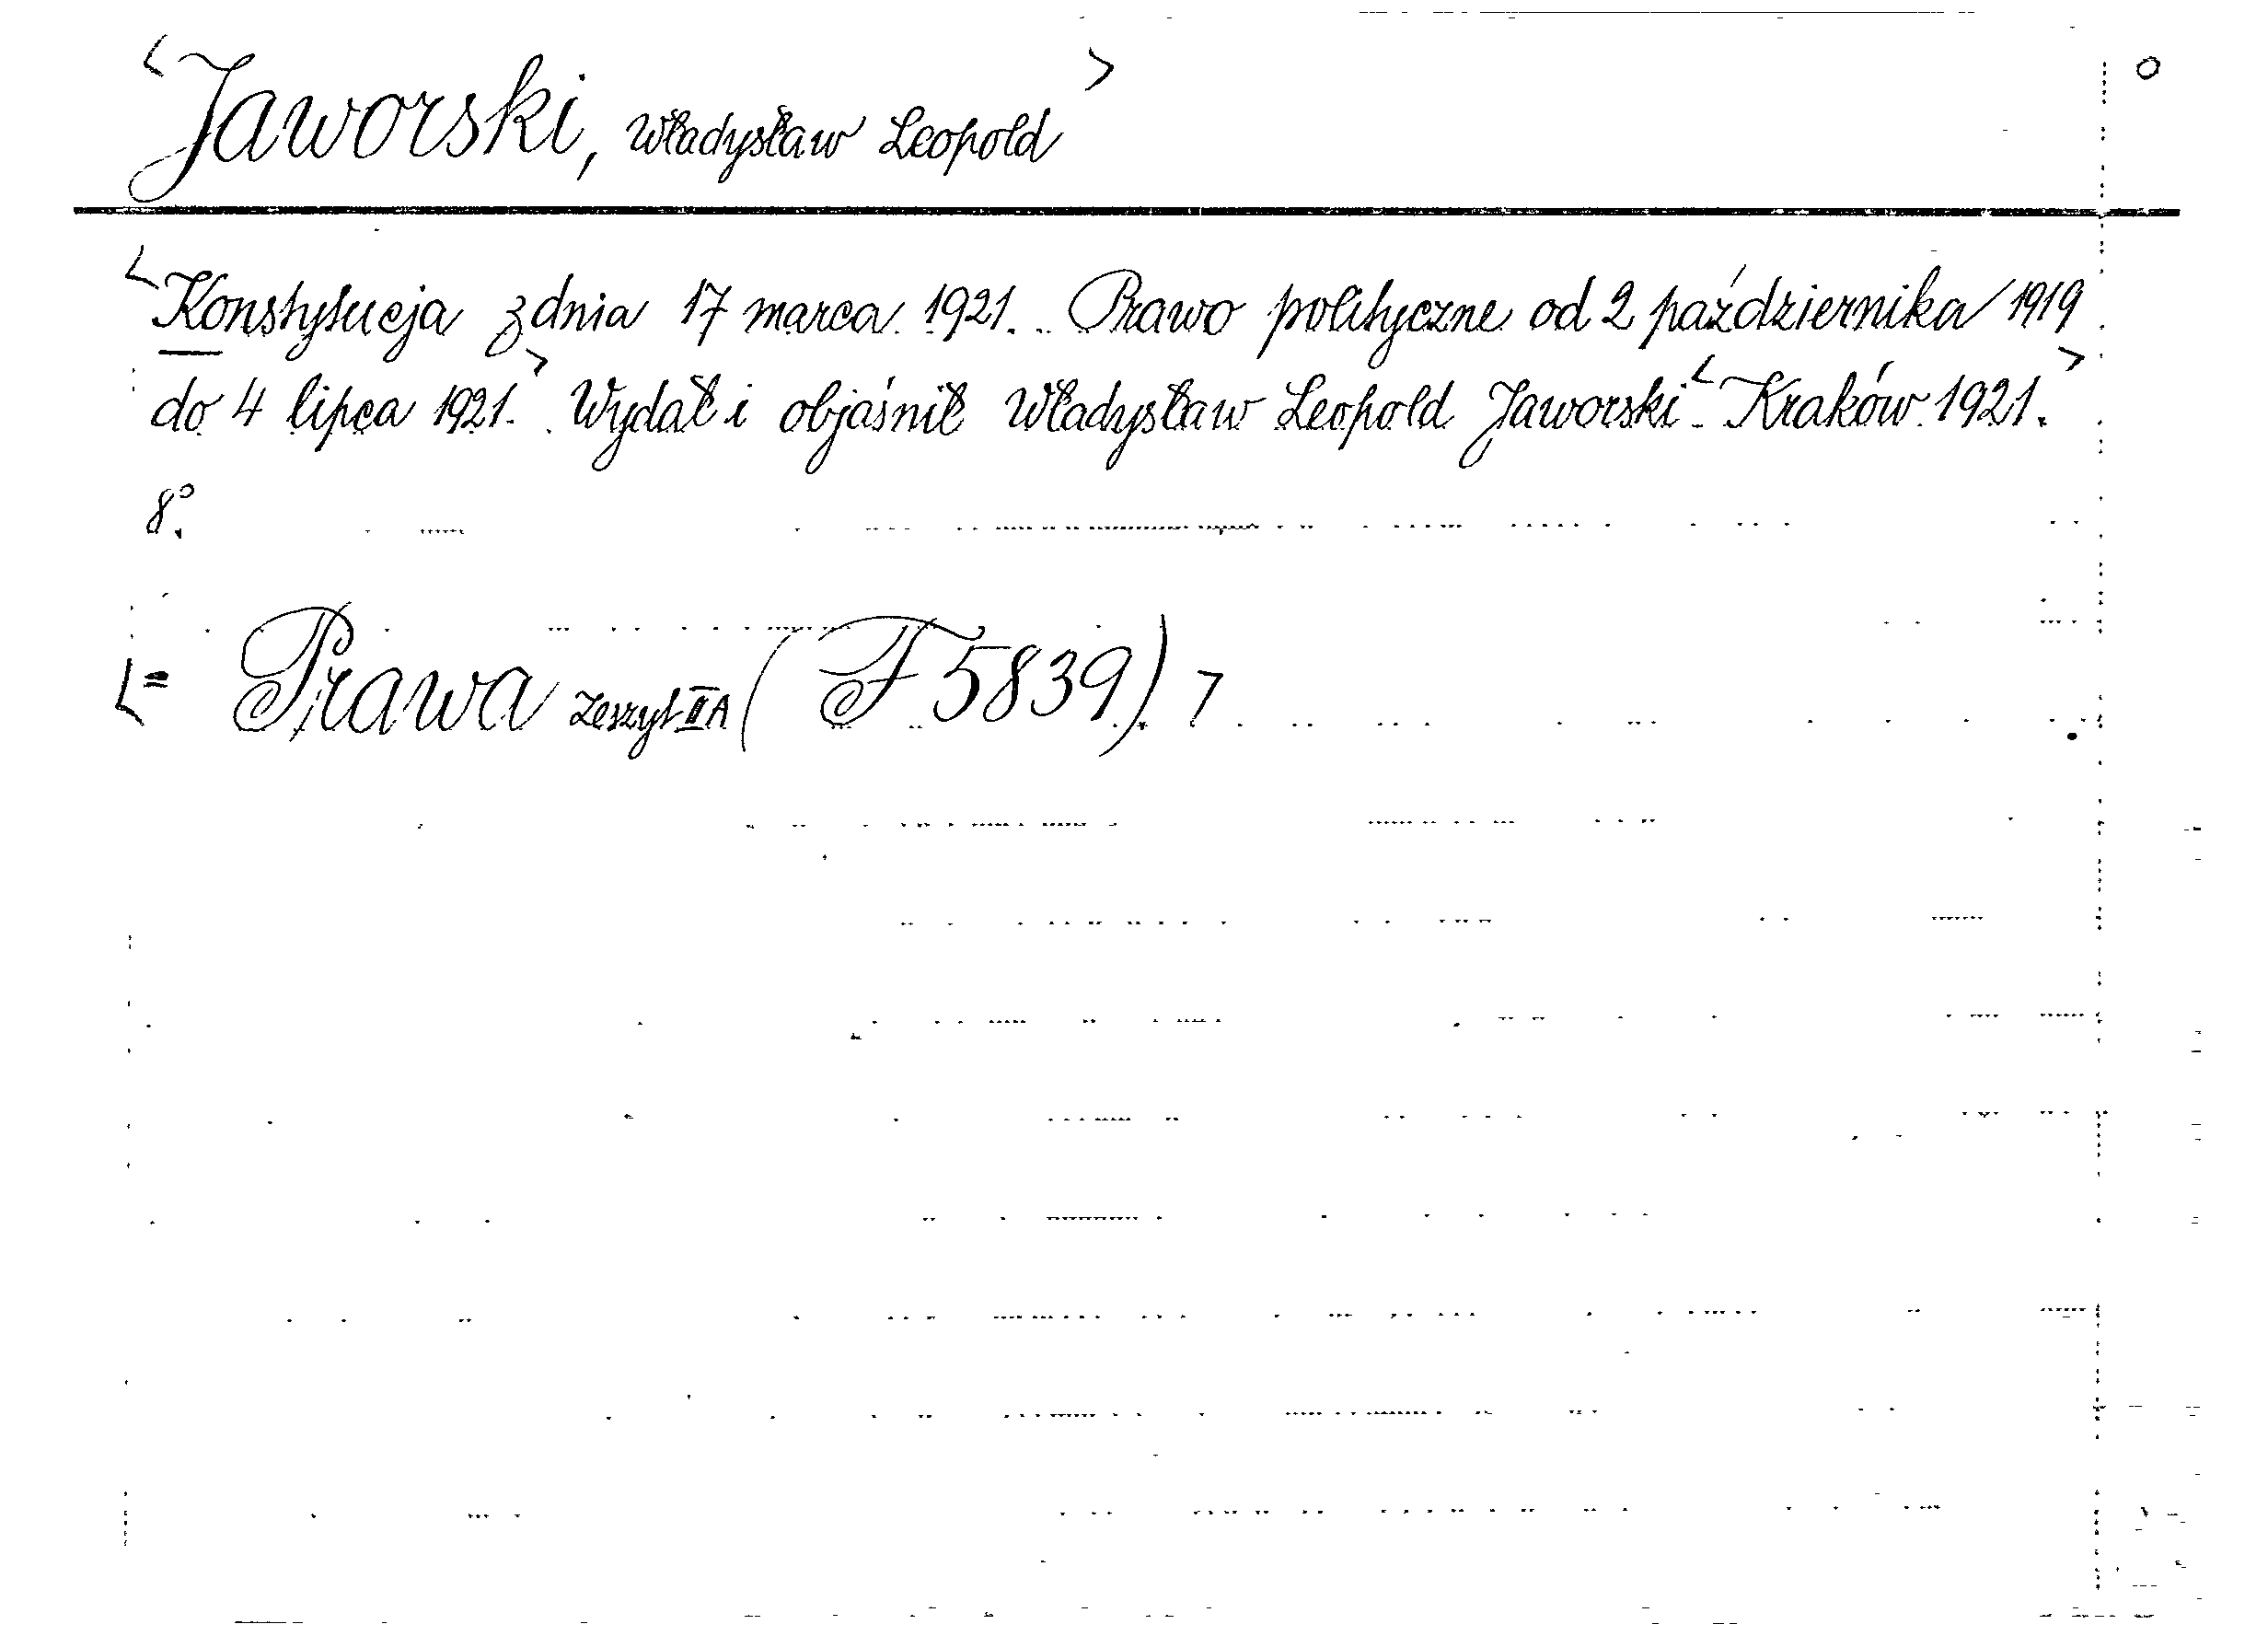 <Jaworski, Władysław Leopold>
<Konstytucja z dnia 17 marca 1921. Prawo polityczne od 2 października 1919
do 4 lipca 1921.> Wydał i objaśnił Władysław Leopold Jaworski. <Kraków 1921.>
8°.
<= Prawa zeszyt II A (F 5839)>